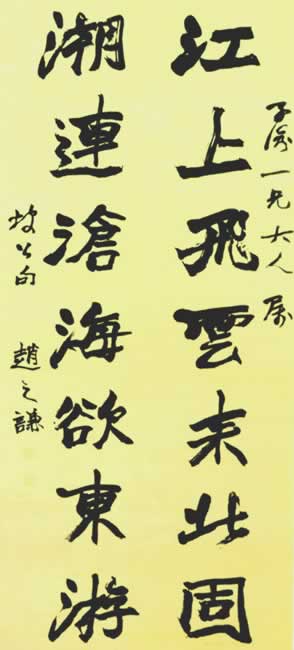 子一兄大人属
江上飛雲来北固
潮連滄海欲東游
坡公句 趙之謙